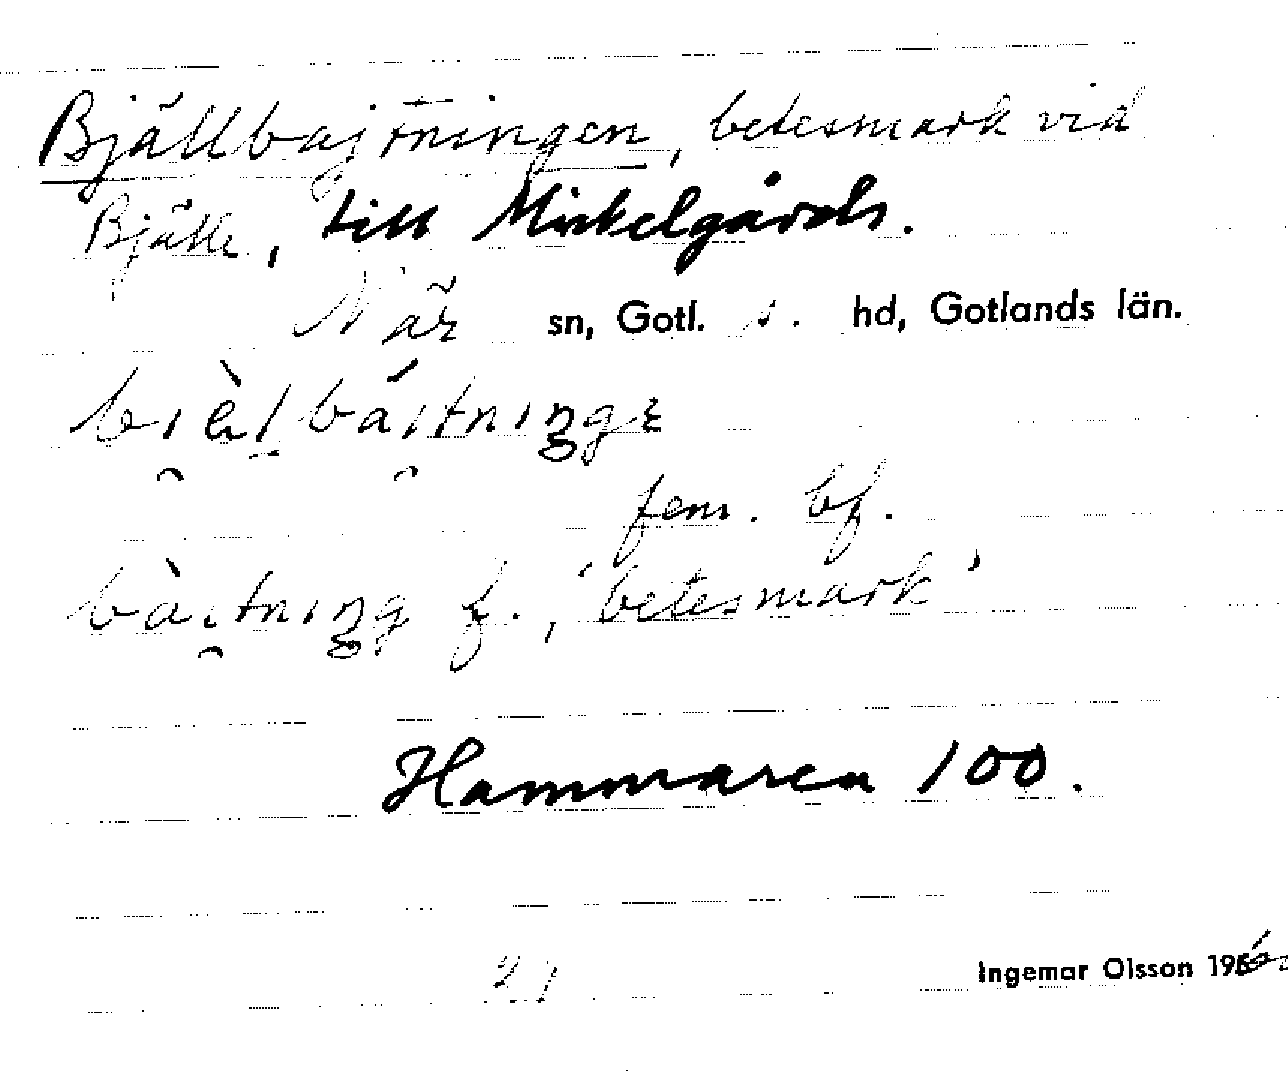 Bjällbajtningen, betesmark vid
Bjälle, till Mickelgårds.
När sn, Gotl. s. hd, Gotlands län.
bi̯èlbái̯tninge
fem. bf.
bài̯tning f., 'betesmark'
Hammaren 100.
21
Ingemar Olsson 196